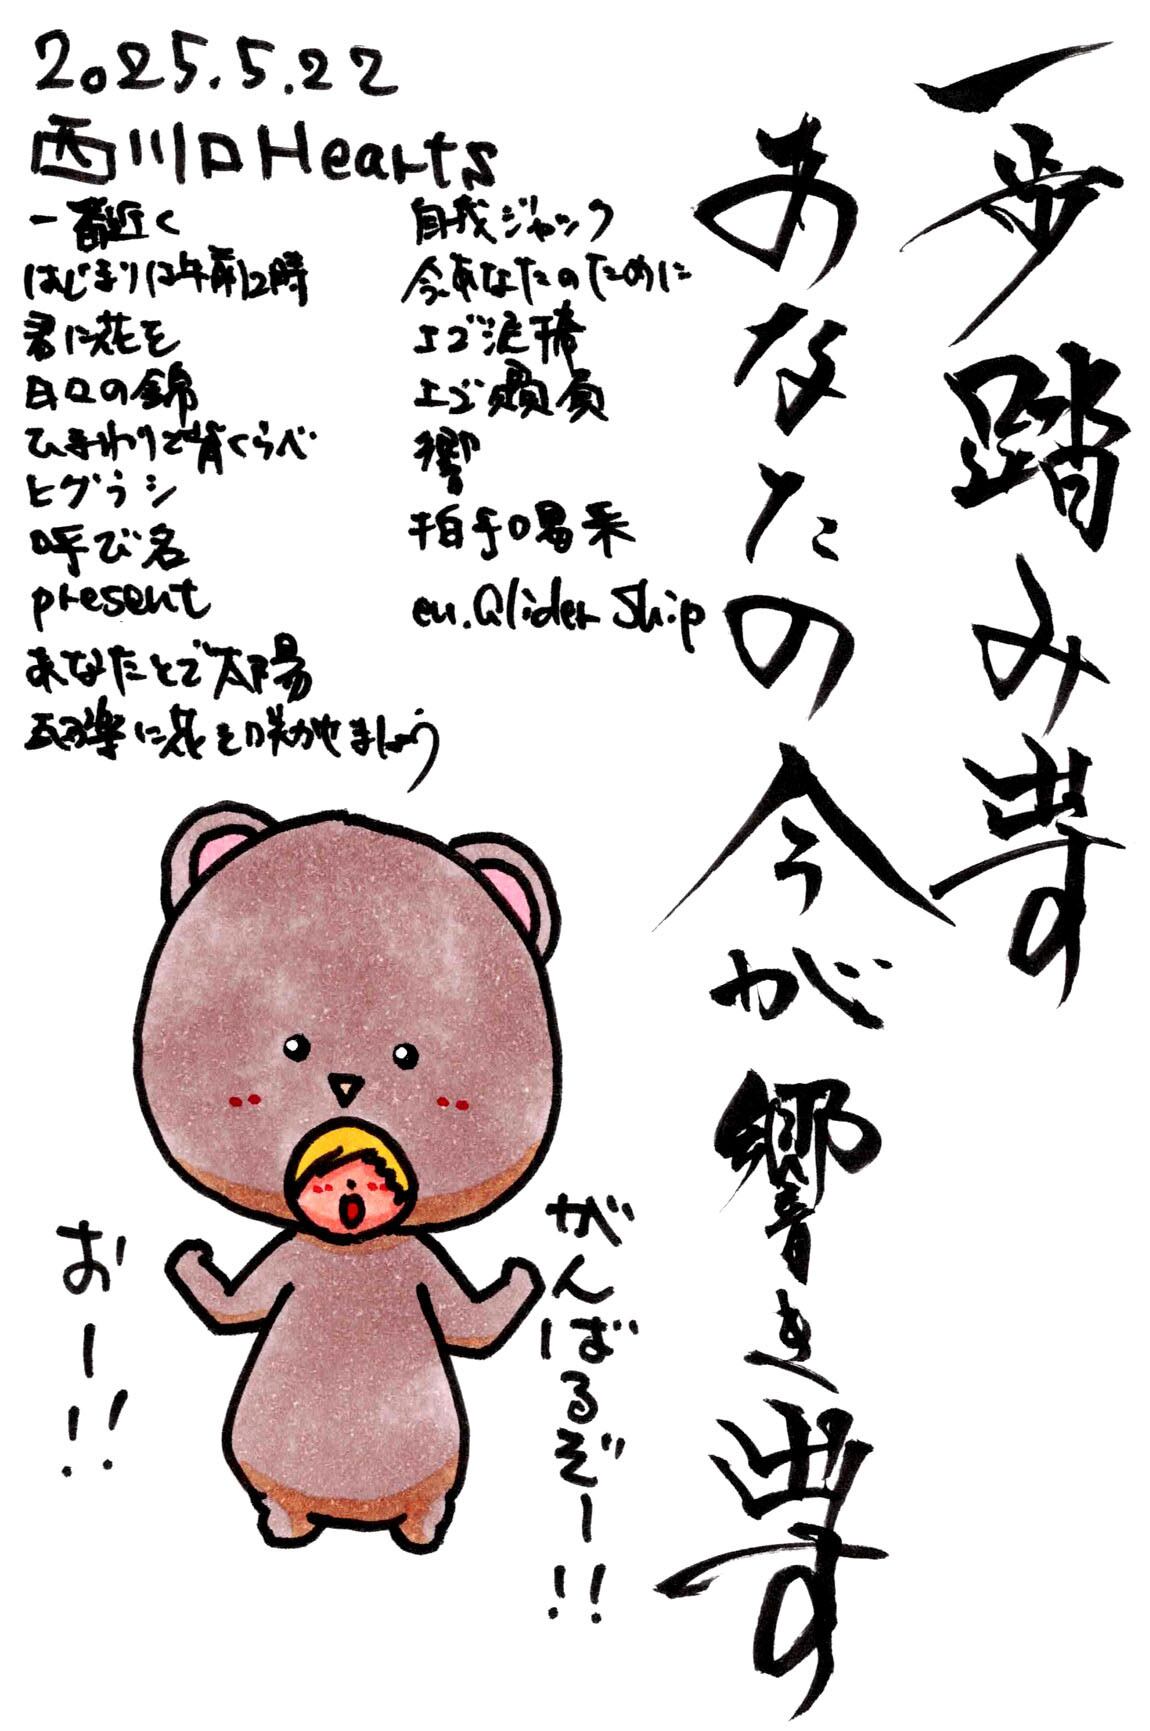 2025.5.22
西川口Hearts
一番近く
はじまりは午前12時
君に花を
日々の錦
ひまわりで背くらべ
ヒグラシ
呼び名
present
あなたとで太陽
花を咲かせましょう
自我ジャック
今、あなたのために
エゴ
エゴ贔屓
響
拍手喝采
en.Glider Ship
一歩踏み出す
あなたの今が響き出す
がんばるぞー!!
おー!!